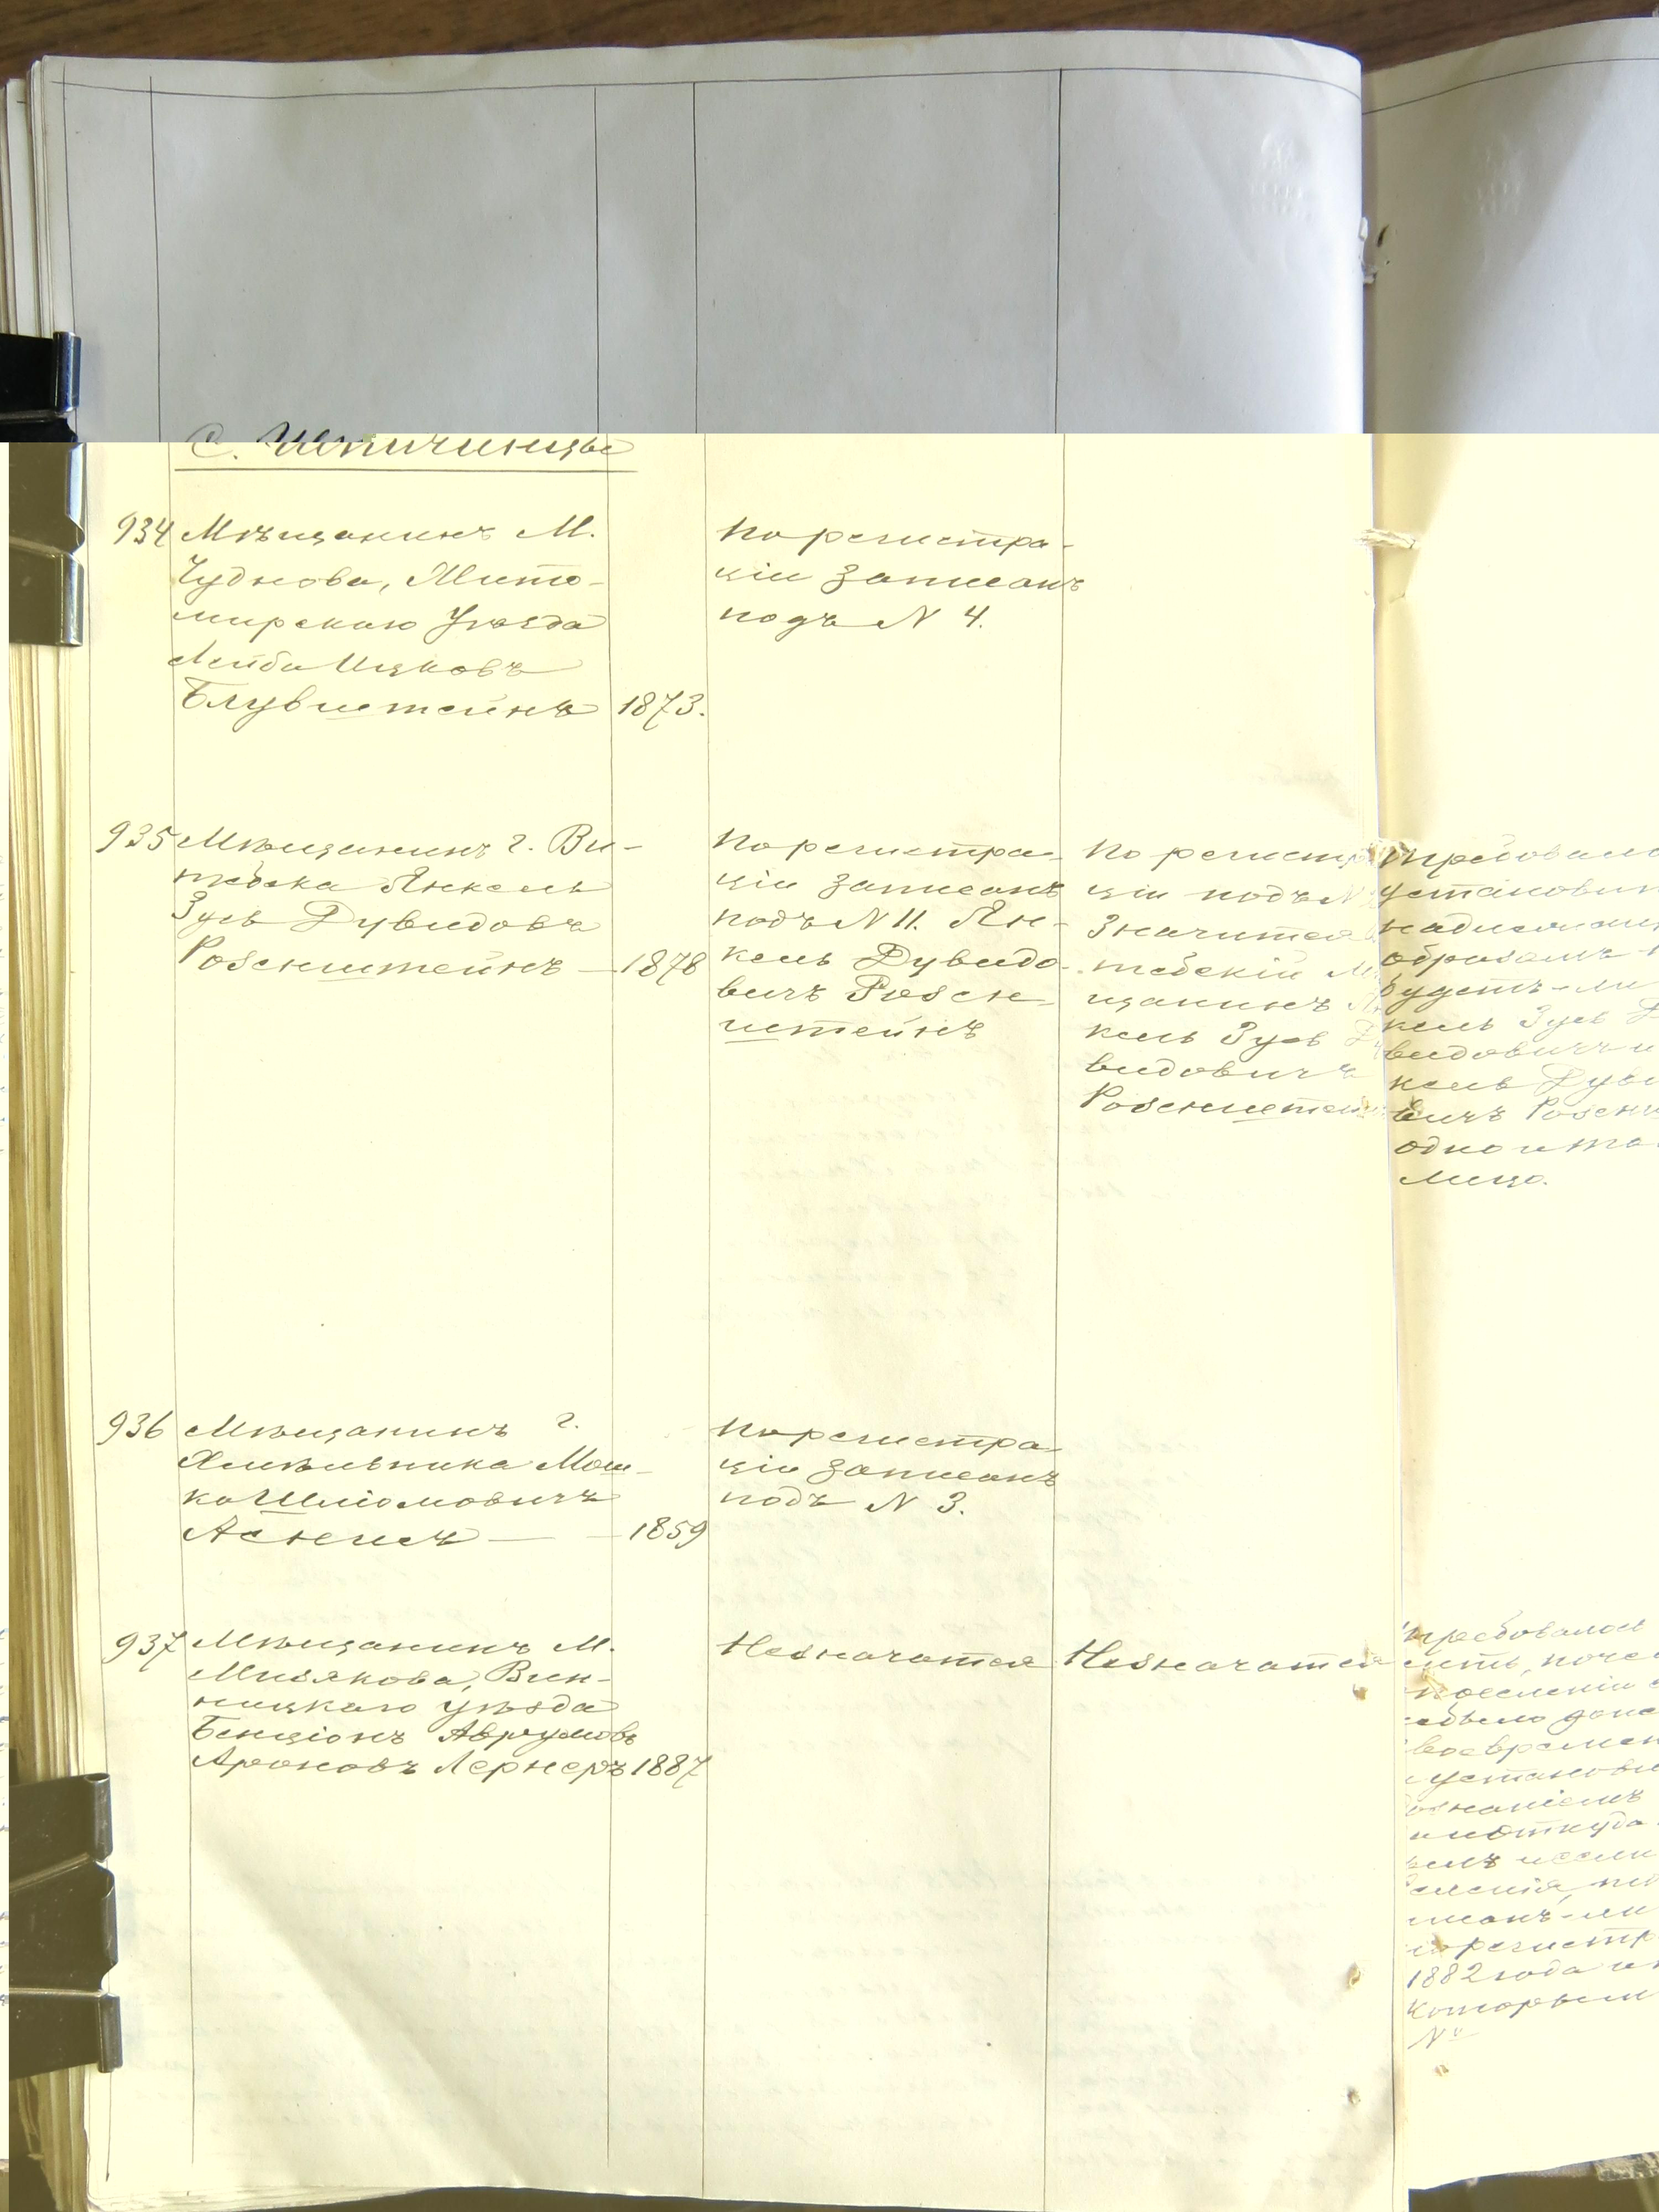 С.
934 Мѣщанинъ М.
Чуднова, Жито-
мирскаго Уѣзда
Лейба Ицковъ
Блувштейнъ 1873.
По регистра-
ціи записанъ
подъ N 4.
935 Мѣщанинъ г. Ви-
тебска Янкель
Зусь Дувидовъ
Розенштейнъ — 1878
По регистра-
ціи записанъ
подъ N 11. Ян-
кель Дувидо-
вичъ Розен-
штейнъ
По регистр
ціи подъ N
Значится
тебскій М
щанинъ
кель Зусь
видовичъ
Розенштей
Требовалос
установит
надлежащи
образомъ
будетъ-ли
кель Зусь Д
видовичъ и
кель Дуви
вичъ Розенш
одно и то
лицо.
936 Мѣщанинъ г.
Хмѣльника Мош-
ко Шліомовичъ
— 1859
По регистра-
ціи записанъ
подъ N 3.
937 Мѣщанинъ М.
Мизякова, Вин-
ницкаго уѣзда
Бенціонъ Аврумовъ
Ароновъ Лернеръ 1887
Незначатся
Незначатся
Требовалос
поче
поселеніи
своевремен
установи
ознаніемъ
и откуда
регистр
1882 года и
которымъ
№